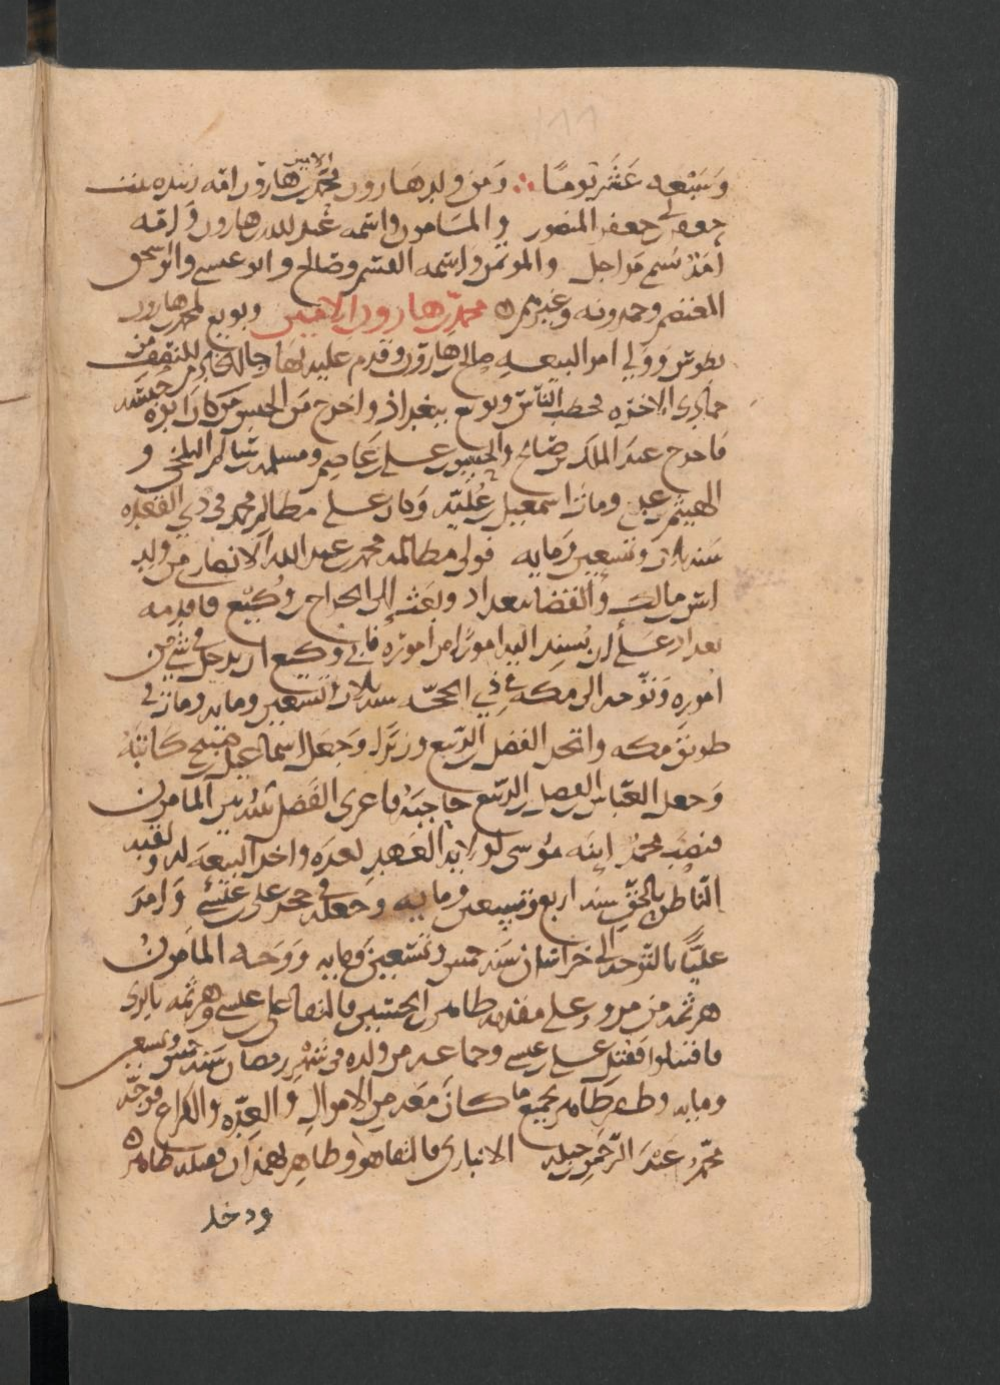 وسبعه عشر يوما ومن ولد هارون محمد بن هارون الامين امه زبيده بنت
جعفر بن جعفر المنصور والمامون واسمه عبد الله بن هارون وامه
امة تسمى مراجل والموتمن واسمه القسم وصالح وابو عيسى وابو اسحق
المعتصم وحمدونه وغيرهم محمد بن هارون الامين وبويع لمحمد بن هارون
بطوس وولي امر البيعه صالح بن هارون وقدم عليه بها رجا الخادم للنصف من
جمادى الاخره فخطب الناس وبويع ببغداذ واخرج من الحبس من كان ابوه حبسه
فاخرج عبد الملك بن صالح والحسن بن علي بن عاصم ومسلم بن سالم البلخي و
الهيثم بن عدي ومات اسمعيل بن علية وكان على مظالم محمد في ذي القعده
سنه ثلاث وتسعين ومايه فولى مظالمه محمد بن عبد الله الانصاري من ولد
انس بن مالك والقضا ببغداد وبعث الى وكيع بن الجراح فاقدمه
بغداد على ان يسند اليه امورا من اموره فابى وكيع ان يدخل في شي من
اموره وتوجه الى مكه في ذي الحجه سنه ثلاث وتسعين ومايه ومات في
طريق مكه واتخذ الفضل بن الربيع وزيرا وجعل اسماعيل بن صبيح كاتبه
وجعل العباس بن الفضل بن الربيع حاجبه فاغرى الفضل بينه وبين المامون
فنصب محمد ابنه موسى لولاية العهد بعده واخذ البيعه له ولقبه
الناطق بالحق سنه اربع وتسعين ومايه وجعله في حجر علي بن عيسى وامر
عليا بالتوجه الى خراسان سنه خمس وتسعين ومايه ووجه المامون
هرثمه من مرو وعلى مقدمته طاهر بن الحسين فالتقا علي بن عيسى وهرثمه بالري
فاقتتلوا فقتل علي بن عيسى وجماعه من ولده في شهر رمضان سنه خمس وتسعين
ومايه وظفر طاهر بجميع ما كان معه من الاموال والعده والكراع فوجه
محمد عبد الرحمن بن جبله الانباري فالتقا هو وطاهر بهمذان فقتله طاهر
ودخل